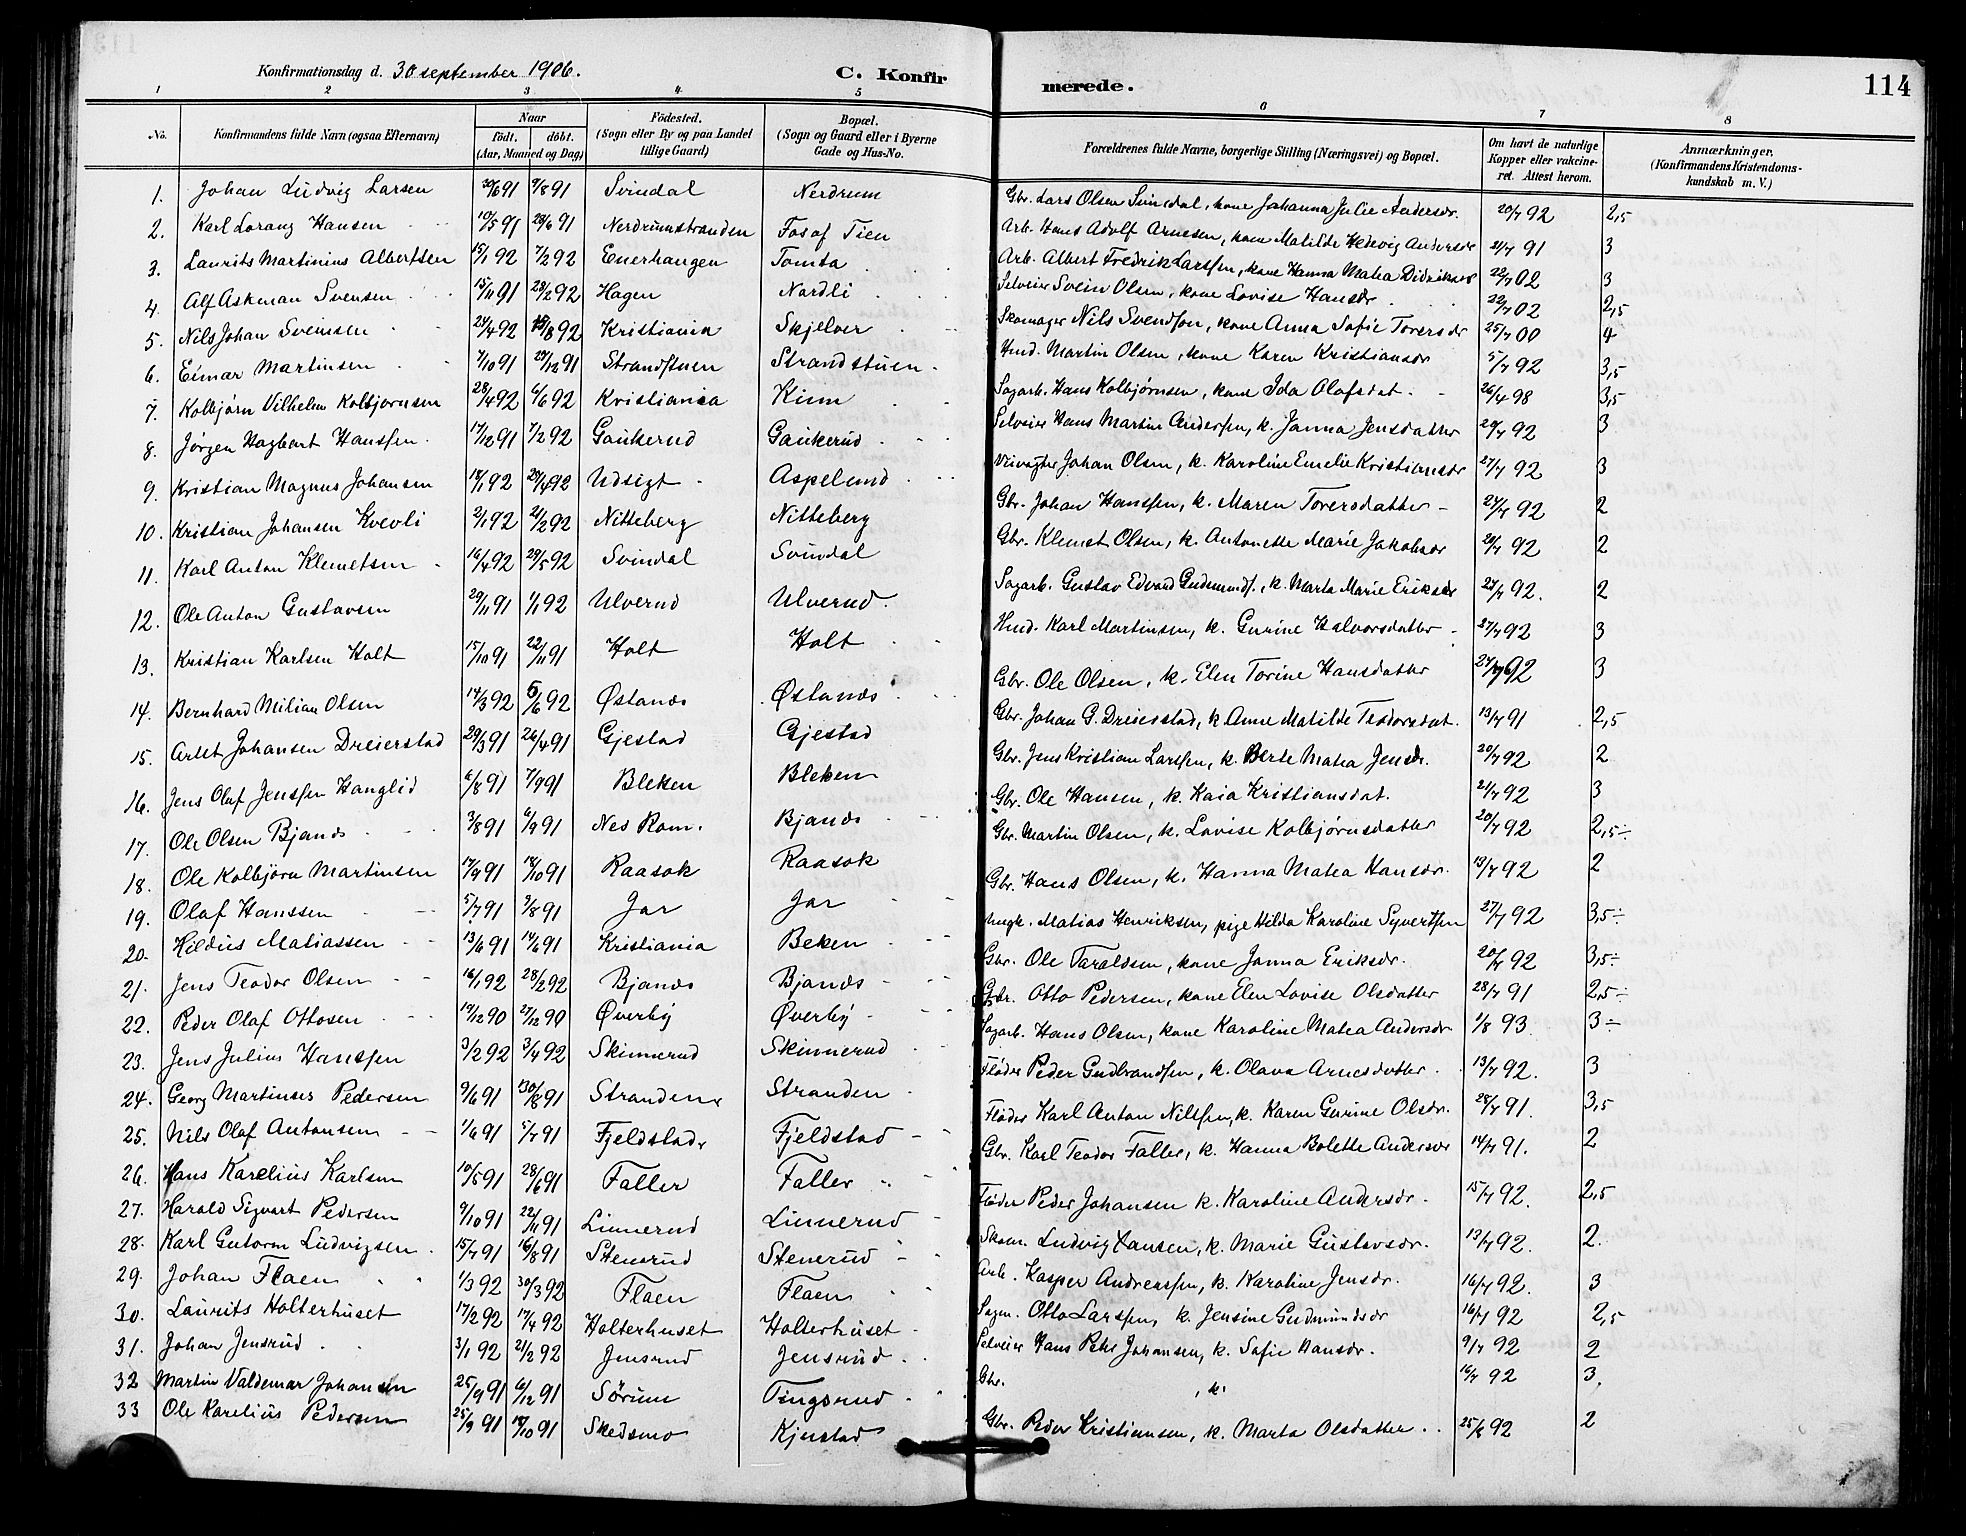 Konfirmationsdag d. 30 september 1906. C. Konfirmerede. 114
1 2 3 4 5 6 7 8
No. Konfirmandens fulde Navn (ogsaa Efternavn) Naar födt. döbt. (Aar, Maaned og Dag) Födested. (Sogn eller By og paa Landet tillige Gaard) Bopæl. (Sogn og Gaard eller i Byerne Gade og Hus-No. Forældrenes fulde Navne, borgerlige Stilling (Næringsvei) og Bopæl. Om havt de naturlige Kopper eller vakcineret. Attest herom. Anmærkninger, (Konfirmandens Kristendomskundskab m. V.)
1. Johan Ludvig Larsen 30/6 91 9/8 91 Svindal Nerdrum Gbr. Lars Olsen Svindal, kone Johanna Julie Andersdr. 20/7 92 2,5
2. Karl Lorang Hansen 10/5 91 28/6 91 Nerdrumstranden Fosof Tien Arb. Hans Adolf Arnesen, kone Matilde Hedevig Andersdr 21/7 91 3
3. Laurits Martinius Albertsen 15/1 92 7/2 92 Enerhaugen Tomta Arb. Albert Fredrik Larssen, kone Hanna Matea Didriksdr 22/7 02 3
4. Alf Askman Svensen 15/11 91 28/2 92 Hagen Nordli Selveier Svein Olsen, kone Lovise Hansdr. 22/7 02 2,5
5. Nils Johan Svensen 24/4 92 15/8 92 Kristiania Skjelver Skomager Nils Svendson, kone Anna Sofie Torersdr 25/7 00 4
6. Einar Martinsen 7/10 91 29/12 91 Strandstuen Strandstuen Hmd. Martin Olsen, kone Karen Kristiansdr 5/7 92 3,5
7. Kolbjørn Vilhelm Kolbjørnsen 28/4 92 6/6 92 Kristiania Kinn Sagarb. Hans Kolbjørnsen, kone Ida Olafsdat. 26/4 98 3,5
8. Jørgen Hagbart Hanssen. 17/12 91 7/2 92 Gaukerud Gaukerud Selveier Hans Martin Anderssen, k. Janna Jensdatter 20/7 92 3
9. Kristian Magnus Johansen 18/1 92 29/4 92 Udsigt Aspelund Veivogter Johan Olsen, k. Karoline Emelie Kristiansdr 27/7 92 3
10. Kristian Johansen Kvevli 2/1 92 21/2 92 Nitteberg Nitteberg Gbr. Johan Hanssen, k. Maren Torersdatter 24/7 92 2
11. Karl Anton Klemetsen 16/4 92 29/5 92 Svindal Svindal Gbr. Klemet Olsen, k. Antonette Marie Jakobsdr 20/7 92 2
12. Ole Anton Gustavsen 29/11 91 1/1 92 Ulverud Ulverud. Sagarb. Gustav Edvard Gudmunds., k. Marta Marie Eriksdr 27/7 92. 2
13. Kristian Karlsen Holt 15/10 91 22/11 91 Holt Holt Hmd. Karl Martinsen, k. Gurine Halvorsdatter 27/7 92 3
14. Bernhard Milian Olsen 14/3 92 5/6 92 Østands Østands Gbr. Ole Olsen, k. Elen Torine Hansdatter 24/7 92 3
15. Arlet Johansen Dreierstad 29/3 91 26/4 91 Gjestad Gjestad Gbr. Johan G. Dreierstad, k. Anne Matilde Teodorsdat. 13/7 91 2,5
16. Jens Olaf Jenssen Hanglid 6/8 91 7/9 91 Bleken Bleken Gbr. Jens Kristian Larssen, k. Berte Matea Jensdr. 20/7 92 2
17. Ole Olsen Bjands 3/8 91 6/9 91 Nes Rom. Bjands Gbr. Ole Hansen, k. Kaia Kristiansdat. 21/7 92 3
18. Ole Kolbjørn Martinsen 17/9 91 18/10 91 Raasok Raasok Gbr. Martin Olsen, k. Lovise Kolbjørnsdatter 20/7 92 2,5÷
19. Olaf Hanssen 5/7 91 9/8 91 Jar Jar Gbr. Hans Olsen, k. Hanna Matea Hansdr. 13/7 92 2
20. Hildus Matiassen 13/6 91 14/6 91 Kristiania Beken Ungk. Matias Henriksen, pige Hilda Karoline Syvertsen 27/7 92 3,5÷
21. Jens Teodor Olsen 16/1 92 28/2 92 Bjands Bjands Gbr. Ole Taraldsen, kone Janna Eriksdr. 20/7 92 3,5÷
22. Peder Olaf Ottosen 19/12 90 27/12 90 Øverby Øverby Gbr. Otto Pedersen, kone Elen Lovise Olsdatter 28/7 91 2,5÷
23. Jens Julius Hanssen 3/2 92 3/4 92 Skinnerud Skinnerud Sagarb. Hans Olsen, kone Karoline Matea Andersdr 1/8 93 3÷
24. Georg Martinus Pedersen 9/6 91 30/8 91 Stranden Stranden Fløder Peder Gudbrandsen, k. Olava Arnesdatter 13/7 92. 3
25. Nils Olaf Antonsen 1/6 91 5/7 91 Fjeldstad Fjeldstad Fløder Karl Anton Nilssen, k. Karen Gurine Olsdr. 28/7 91. 3,5
26. Hans Karelius Karlsen 10/5 91 28/6 91 Faller Faller Gbr. Karl Teodor Faller, k. Hanna Bolette Andersdr 14/7 91. 2
27. Harald Sigvart Pedersen 9/10 91 22/11 91 Linnerud Linnerud Fløder Peder Johansen k. Karoline Andersdr. 15/7 92. 2,5
28. Karl Gutorm Ludvigsen 15/7 91 16/8 91 Stensrud Stenerud Skom. Ludvig Hansen, k. Marie Gustavsdr. 13/7 92. 2.
29. Johan Flaen 1/3 92 30/3 92 Flaen Flaen Arb. Kasper Andreassen, k. Karoline Jensdr. 16/7 92. 3
30. Laurits Holterhuset 17/2 92 17/4 92 Holterhuset Holterhuset Sagm. Otto Larssen, k. Jensine Gudmundsdr 16/7 92 2,5
31. Johan Jensrud 3/1 92 21/2 92 Jensrud Jensrud Selveier Hans Petr Johansen, k. Sofie Hansdr. 9/7 92 2
32 Martin Valdemar Johansen 25/9 91 6/12 91 Sörum Tingsrud Gbr. , k. 16/7 92 3.
33 Ole Karelius Pedersen 25/9 91 18/10 91 Skedsmo Kjustad Gbr. Peder Kristiansen, k. Marta Olsdatter 25/6 92 2